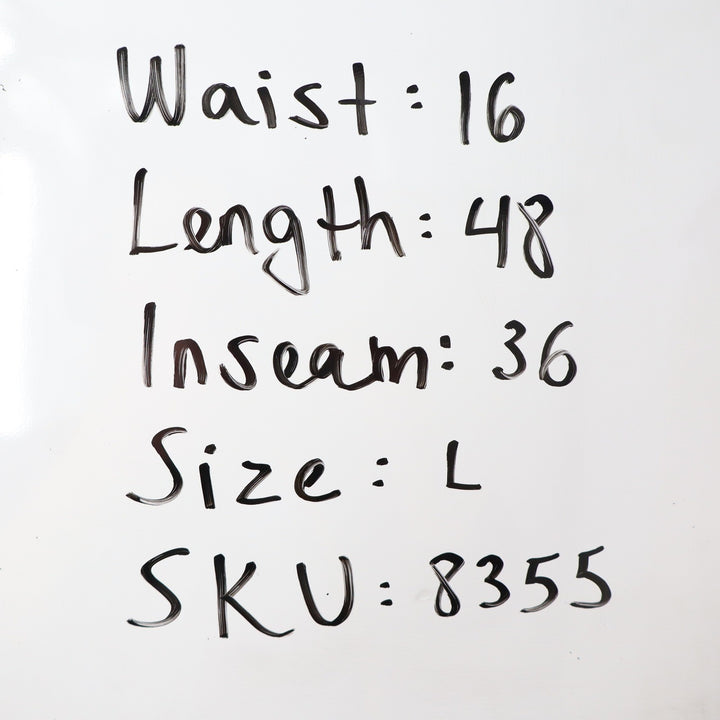 Waist: 16
Length: 48
Inseam: 36
Size: L
SKU: 8355